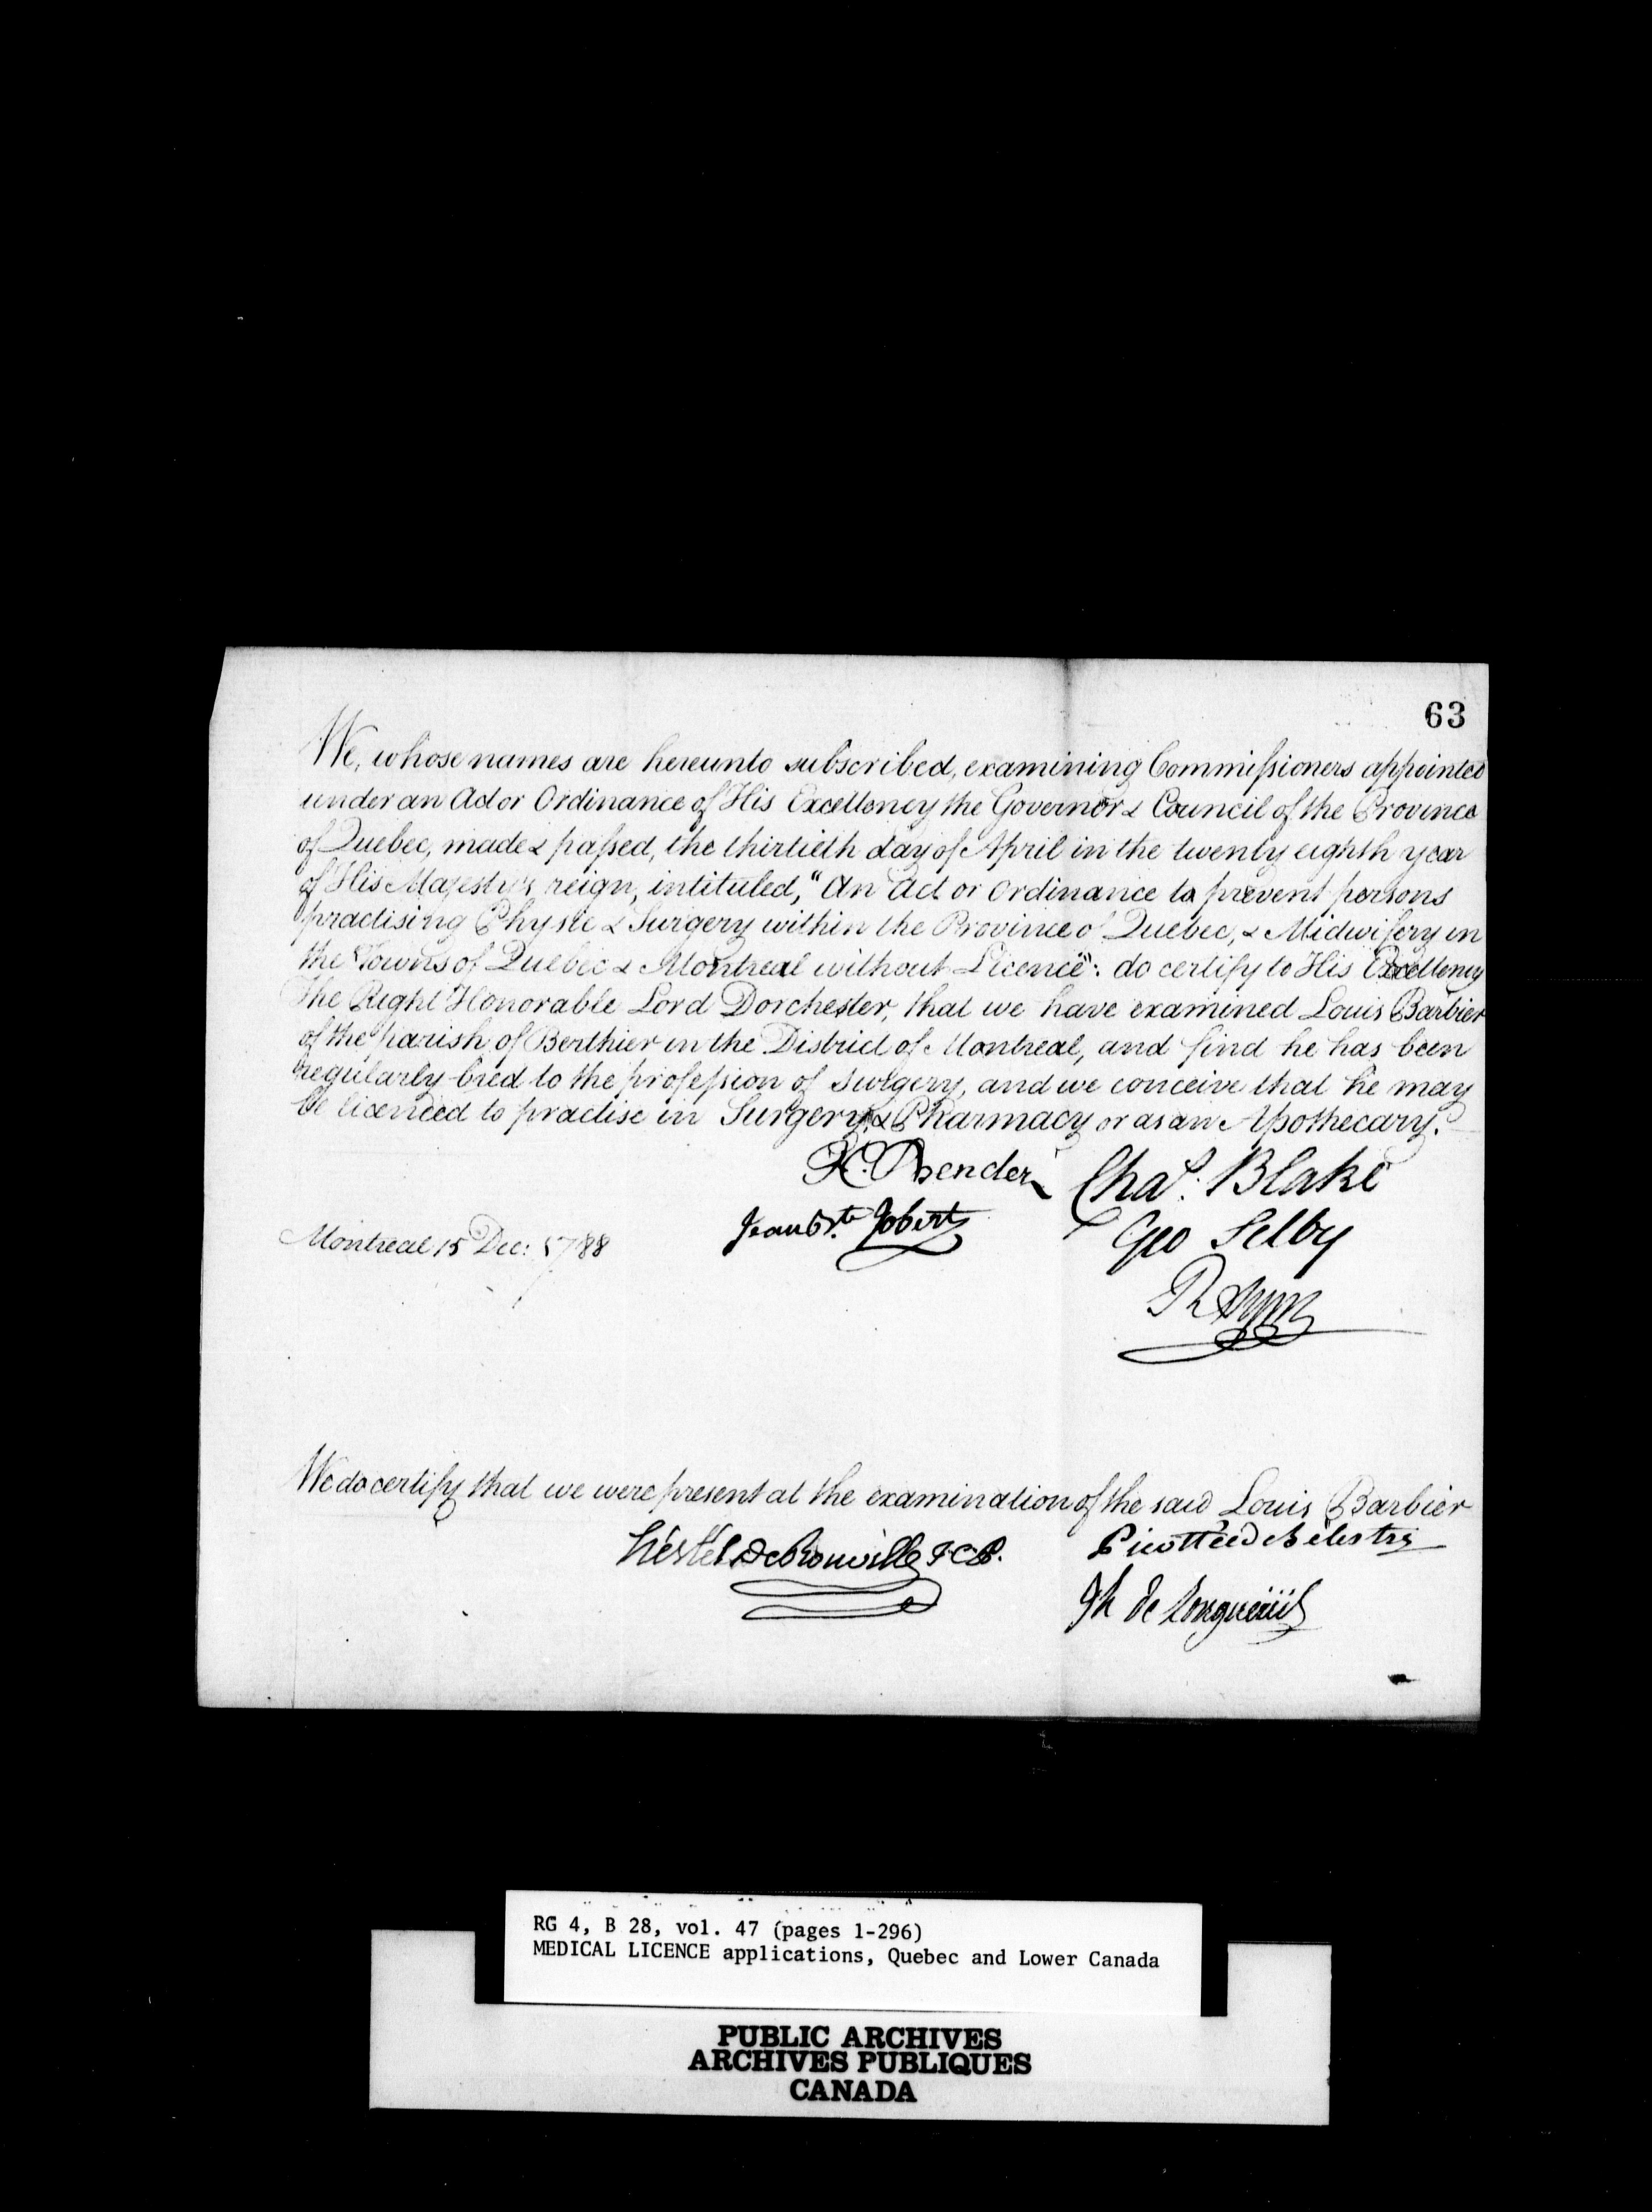 63
We, whose names are hereunto subscribed, examining Commissioners appointed
under an Act or Ordinance of His Excellency the Governor & Council of the Province
of Quebec, made & passed, the thirtieth day of April in the twenty eighth year
of His Majesty's reign, intituled, "An Act or Ordinance to prevent persons
practising Physic & Surgery within the Province of Quebec, & Midwifery in
the Towns of Quebec & Montreal without Licence": do certify to His Excellency
The Right Honorable Lord Dorchester, that we have examined Louis Barbier
of the parish of Berthier in the District of Montreal, and find he has been
regularly bred to the profession of Surgery, and we conceive that he may
be licenced to practise in Surgery & Pharmacy or as an Apothecary.
X. Bender
Chas. Blake
Jean Bte. Jobert
Geo Selby
Montreal 15 Dec: 1788
R Sym
We do certify that we were present at the examination of the said Louis Barbier
hertel De Rouville J.C.P.
Picotté de Belestre
Jh de Longueüil
RG 4, B 28, vol. 47 (pages 1-296)
MEDICAL LICENCE applications, Quebec and Lower Canada
PUBLIC ARCHIVES
ARCHIVES PUBLIQUES
CANADA